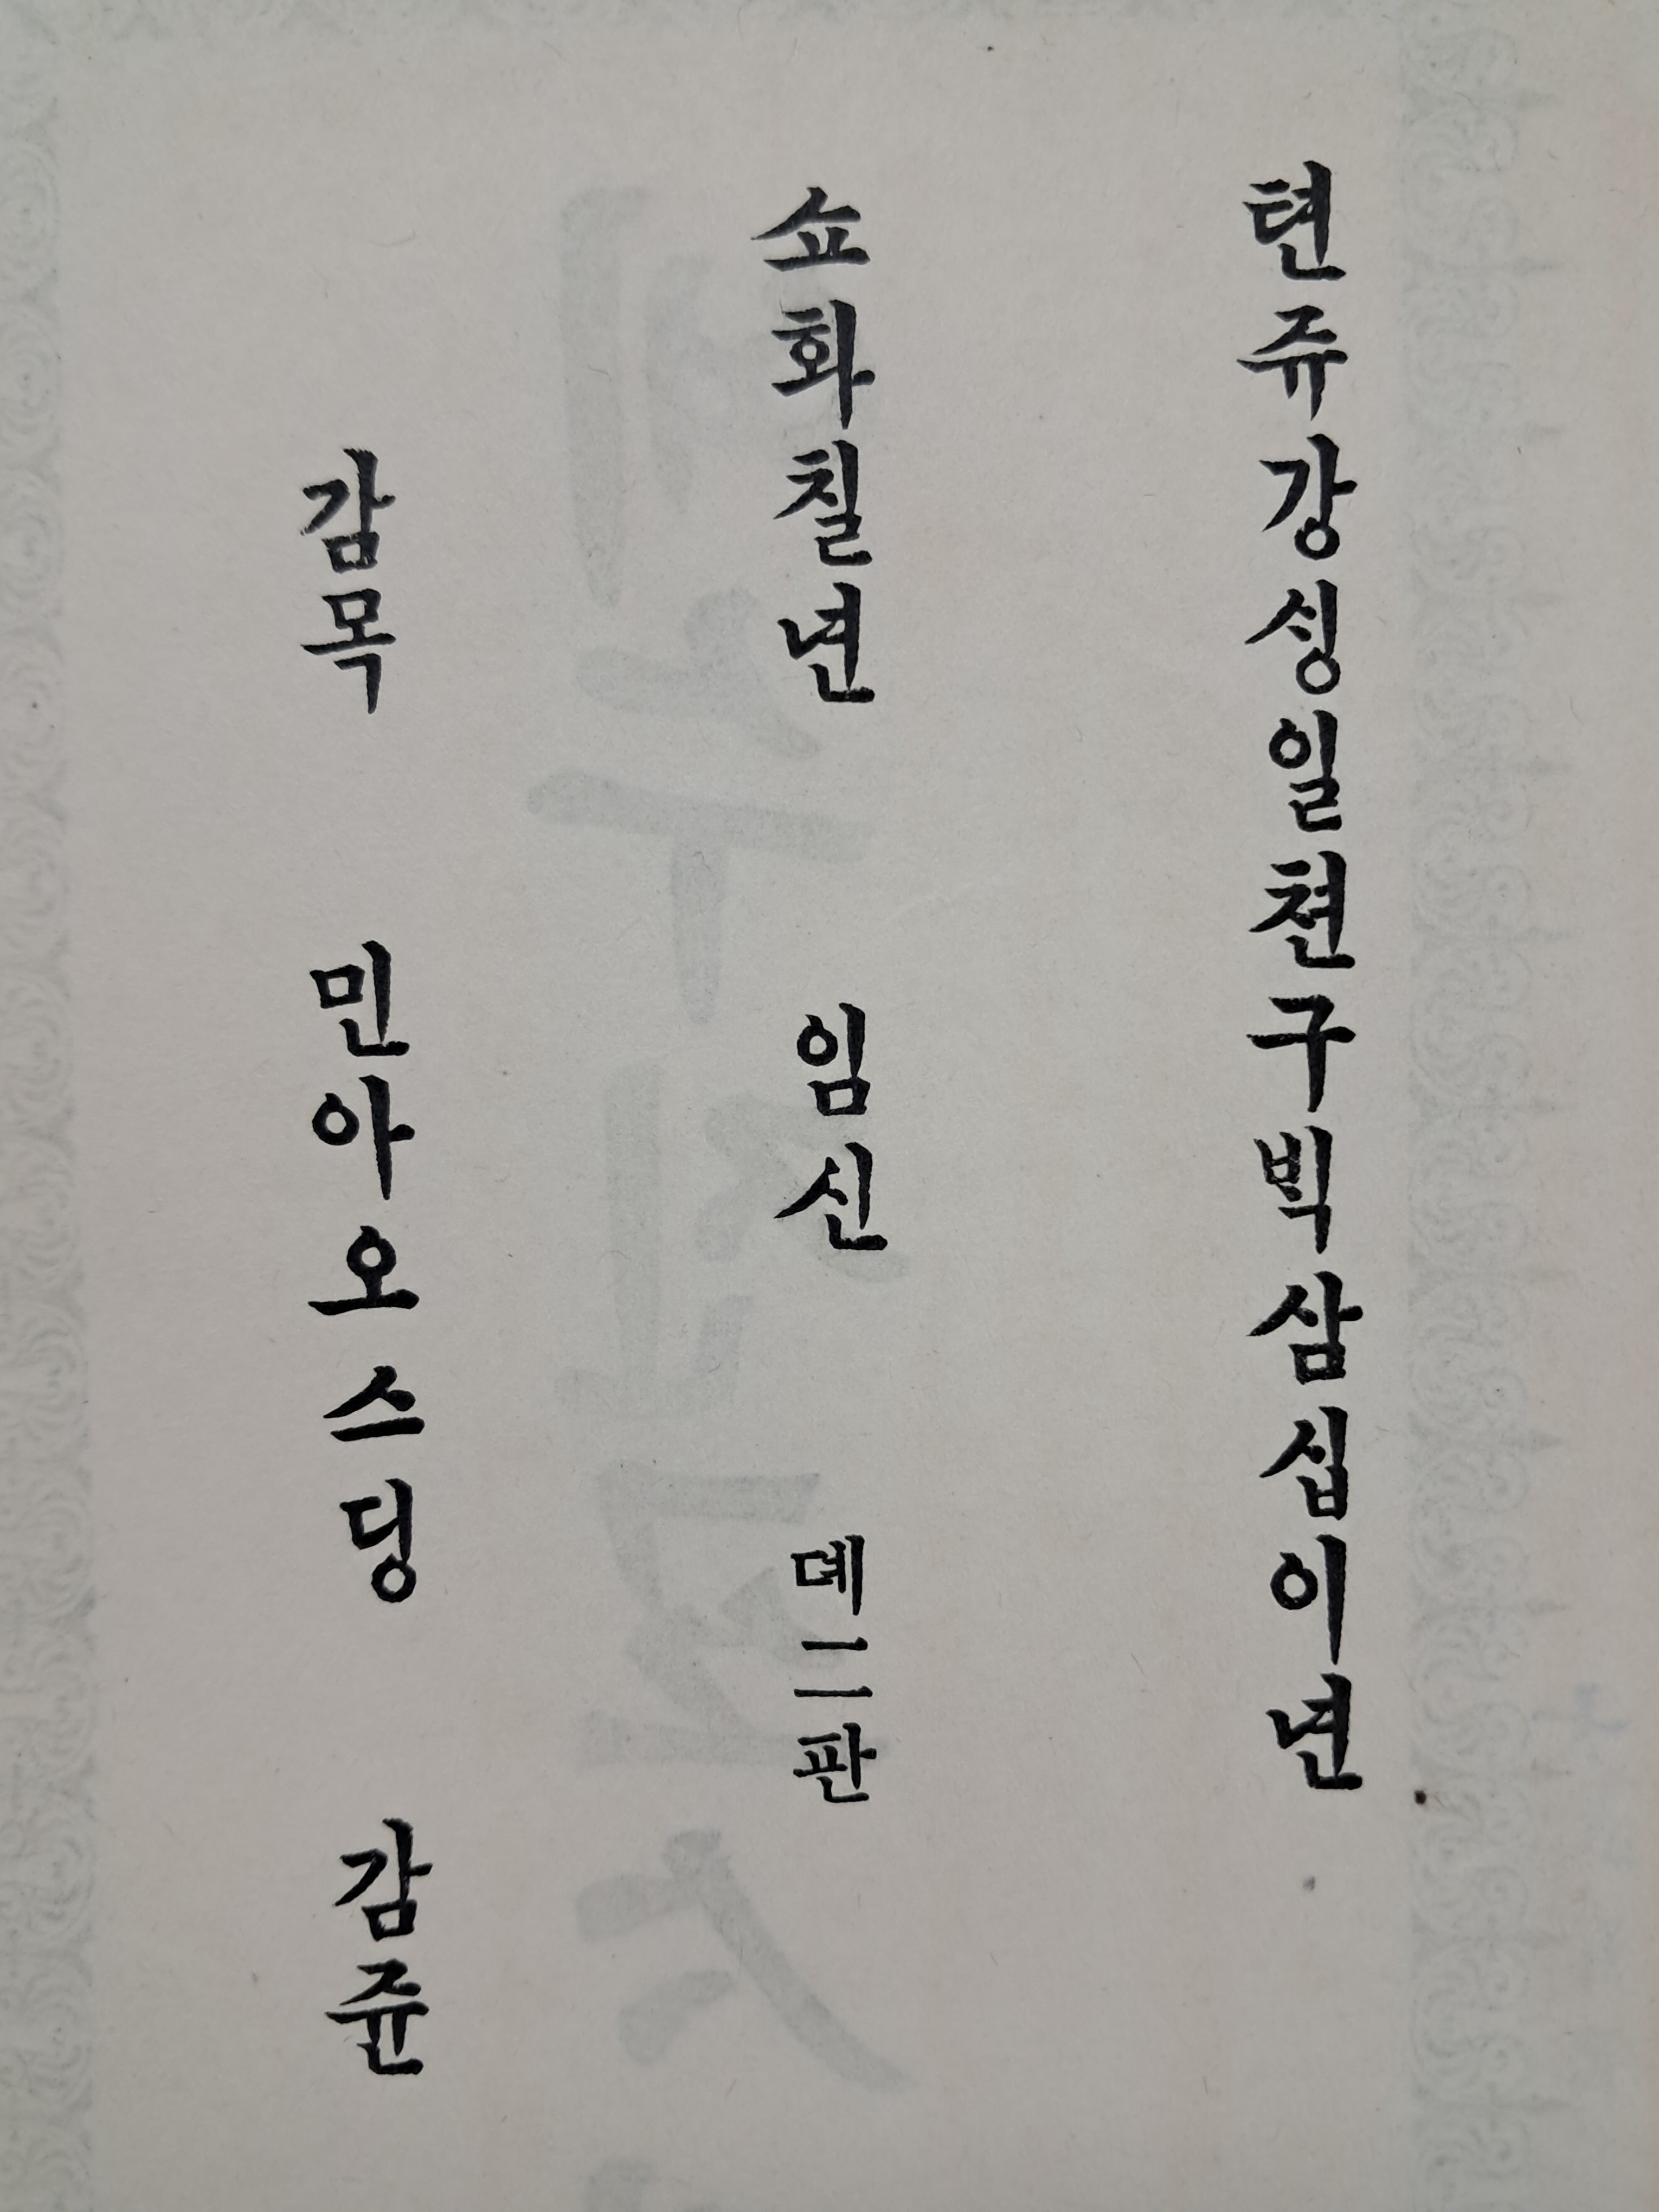 텬쥬강싱일쳔구빅삼십이년
쇼화칠년 임신 뎨二판
감목 민아오스딩 감쥰